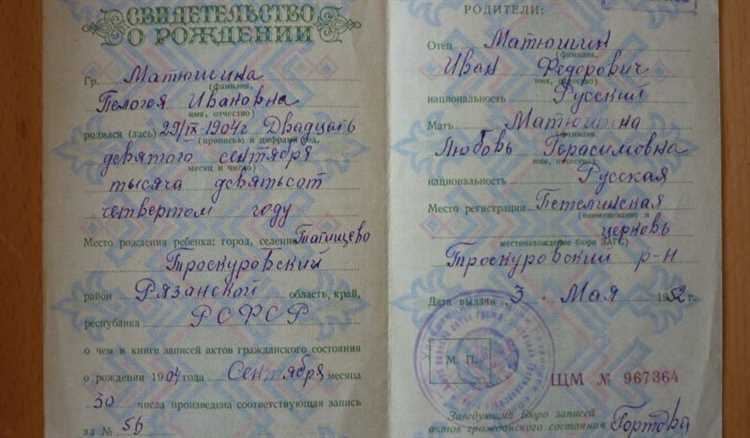 СВИДЕТЕЛЬСТВО
О РОЖДЕНИИ
Гр. Матюшина
(фамилия,
Пелогея Ивановна
имя, отчество)
родился (лась) 29/IX 1904г Двадцать
(прописью и цифрами год,
девятого сентября
месяц и число)
тысяча девятьсот
четвертом году
Место рождения ребенка: город, селение Татищево
Троскуровский
район Рязанской область, край,
республика РСФСР
о чем в книге записей актов гражданского состояния
о рождении 1904 года Сентября месяца
30 числа произведена соответствующая запись
за № 56
РОДИТЕЛИ:
Отец Матюшин
(фамилия,
Иван Федорович
имя, отчество)
национальность Русский
Мать Матюшина
(фамилия,
Любовь Герасимовна
имя, отчество)
национальность Русская
Место регистрации Петелинская
(наименование и
церковь
местонахождение бюро ЗАГС)
Троскуровский р-н
Дата выдачи 3. Мая 1952 г.
М. П.
ЩМ № 967364
Заведующий бюро записей
актов гражданского состояния